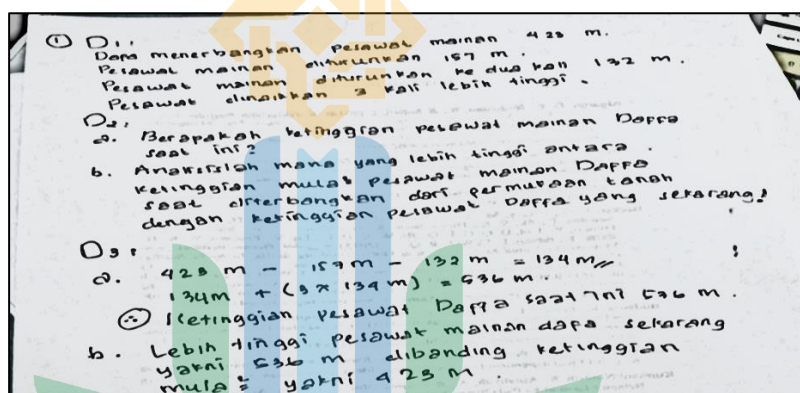 ① D1:
Dafa menerbangkan pesawat mainan 423 m.
Pesawat mainan diturunkan 157 m.
Pesawat mainan diturunkan ke dua kali 132 m.
Pesawat dinaikkan 3 kali lebih tinggi.
D2:
a. Berapakah ketinggian pesawat mainan Daffa
saat ini?
b. Analisislah mana yang lebih tinggi antara
ketinggian mula² pesawat mainan Daffa
saat diterbangkan dari permukaan tanah
dengan ketinggian pesawat Daffa yang sekarang!
D3:
a. 423 m - 157 m - 132 m = 134 m //
134 m + (3 x 134 m) = 536 m.
∴ Ketinggian pesawat Daffa saat ini 536 m.
b. Lebih tinggi pesawat mainan dafa sekarang
yakni 536 m dibanding ketinggian
mula² yakni 423 m.